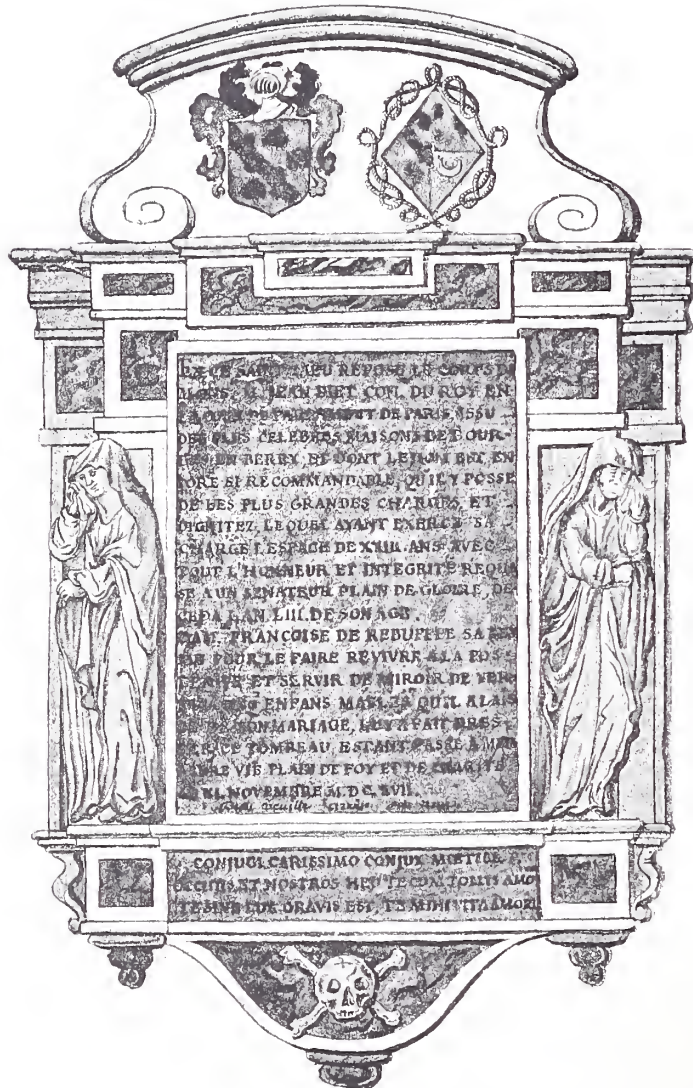 CE SAINT LIEU REPOSE LE CORPS
JEAN BIET CON. DU ROY EN
DE PARIS, ISSU
DES PLUS CELEBRES MAISONS DE BOUR-
EN BERRY, ET DONT LE NOM EST EN
ORE SI RECOMMANDABLE, QU'IL Y POSSE
DE LES PLUS GRANDES CHARGES, ET
DIGNITEZ, LEQUEL AYANT EXERCE SA
CHARGE L'ESPACE DE XXIII. ANS AVEC
TOUT L'HONNEUR ET INTEGRITE REQUI
SE A UN SENATEUR, PLAIN DE GLOIRE, DE
CEDA L'AN. LIII. DE SON AGE.
DAM. FRANCOISE DE REBUFFE SA
POUR LE FAIRE REVIVRE A LA POS
ET SERVIR DE MIROIR DE VER
ENFANS MASLES QU'IL A LAIS
SON MARIAGE, LUY A FAIT DRES
CE TOMBEAU, ESTANT PASSE A
VIE PLAIN DE FOY ET DE CHARITE
XI. NOVEMBRE M. D C. XVII.
CONJUGI CARISSIMO CONJUX
OCCIDIS, ET NOSTROS HEU TECUM TOLLIS AMO
TE SINE LUX GRAVIS EST, TE MIHI VITA